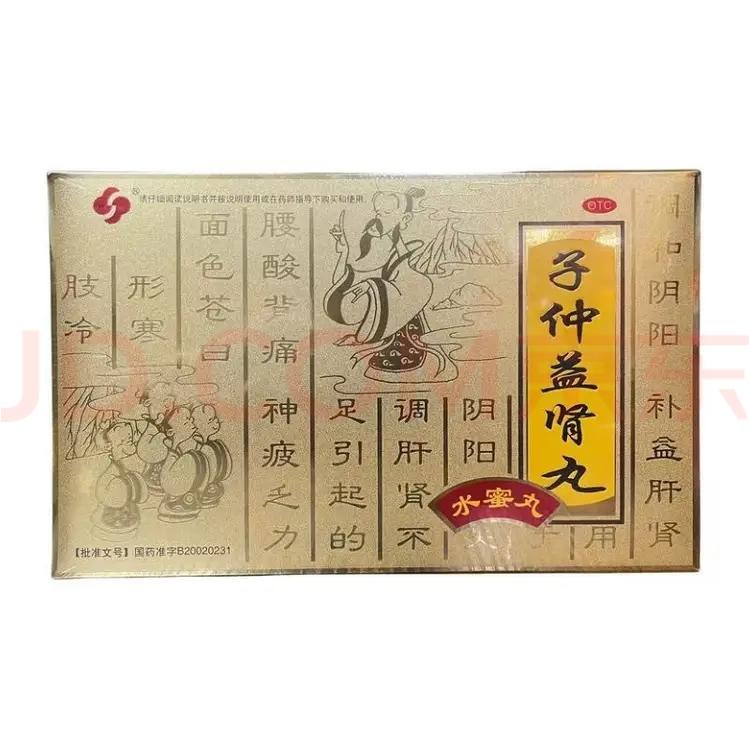 请仔细阅读说明书并按说明使用或在药师指导下购买和使用
OTC
子仲益肾丸
水蜜丸
调和阴阳 补益肝肾
用于
阴阳
调肝肾不
足引起的
腰酸背痛 神疲乏力
面色苍白
形寒
肢冷
【批准文号】国药准字B20020231
JD.COM 京东